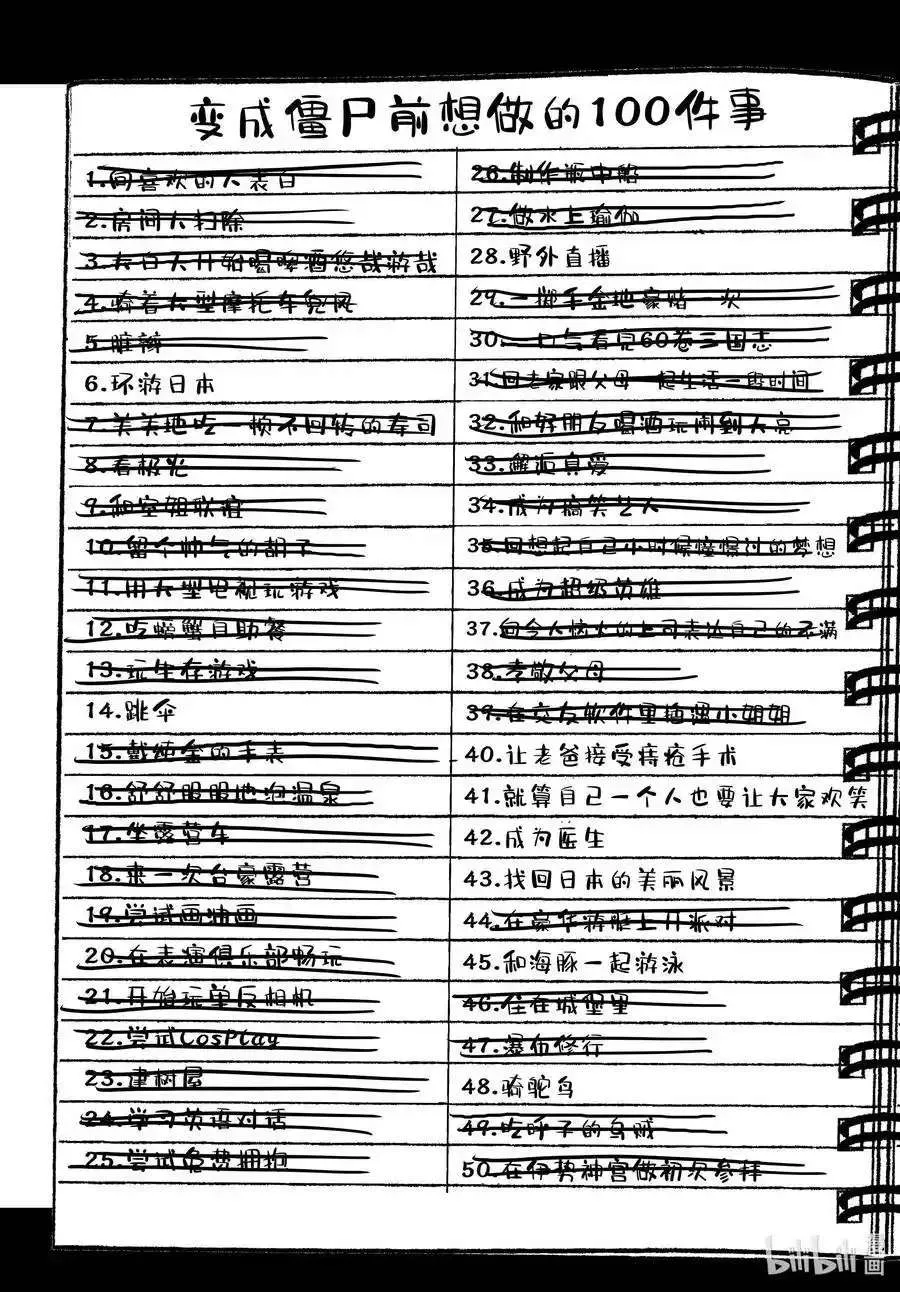 变成僵尸前想做的100件事
1.向喜欢的人表白
2.房间大扫除
3.大白天开始喝啤酒悠哉游哉
4.骑着大型摩托车兜风
5.脏辫
6.环游日本
7.美美地吃一顿不回转的寿司
8.看极光
9.和空姐联谊
10.留个帅气的胡子
11.用大型电视玩游戏
12.吃螃蟹自助餐
13.玩生存游戏
14.跳伞
15.戴纯金的手表
16.舒舒服服地泡温泉
17.坐露营车
18.来一次台豪露营
19.尝试画油画
20.在表演俱乐部畅玩
21.开始玩单反相机
22.尝试CosPlay
23.建树屋
24.学习英语对话
25.尝试免费拥抱
26.制作
27.做水上瑜伽
28.野外直播
29.一掷千金地豪赌一次
30.一口气看完60卷三国志
31.回老家跟父母一起生活一段时间
32.和好朋友喝酒玩闹到天亮
33.邂逅真爱
34.成为搞笑艺人
35.回想起自己小时候憧憬过的梦想
36.成为超级英雄
37.向令人恼火的上司表达自己的不满
38.孝敬父母
39.在交友软件里偶遇小姐姐
40.让老爸接受痔疮手术
41.就算自己一个人也要让大家欢笑
42.成为医生
43.找回日本的美丽风景
44.在豪华游艇上开派对
45.和海豚一起游泳
46.住在城堡里
47.瀑布修行
48.骑鸵鸟
49.吃呼子的乌贼
50.在伊势神宫做初次参拜
bilibili漫画